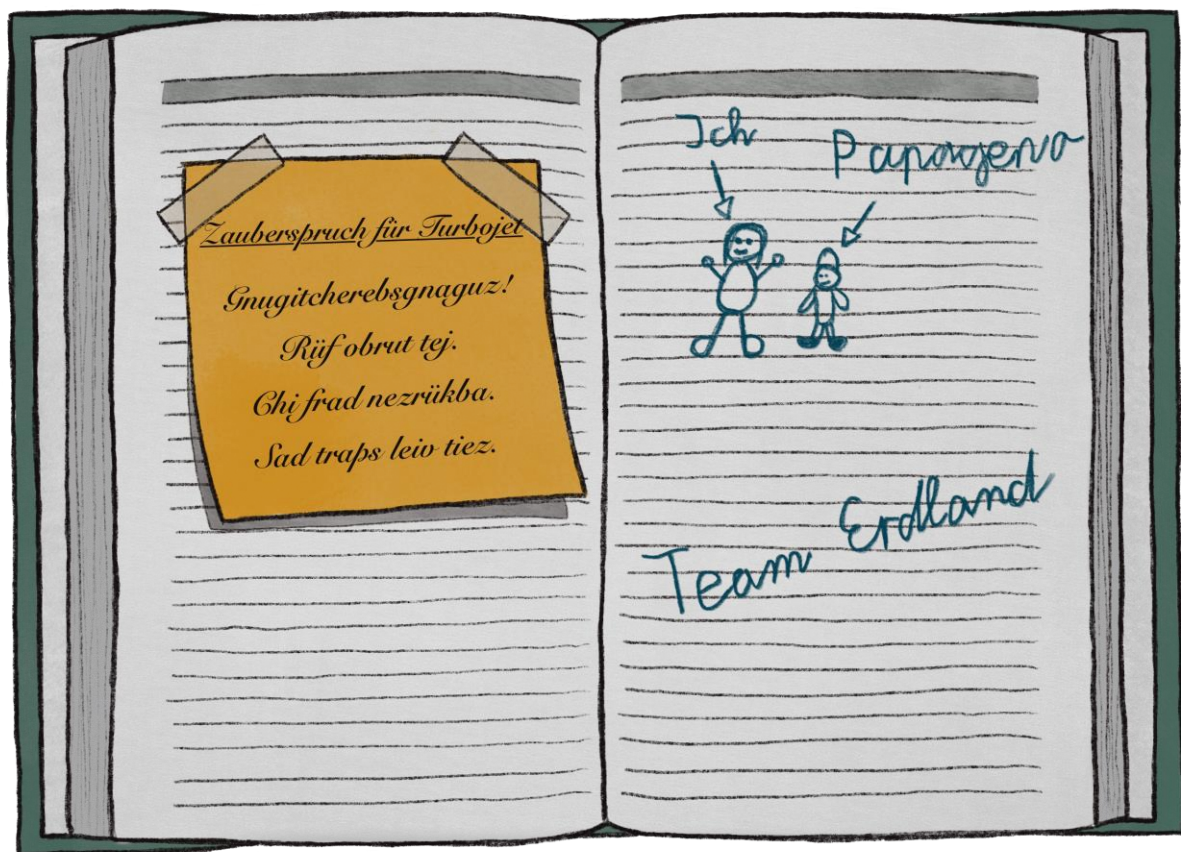 Zauberspruch für Turbojet
Gnugitcherebsgnaguz!
Rüf obrut tej.
Chi frad nezrükba.
Sad traps leiv tiez.
Ich
Papagena
Team Erdland